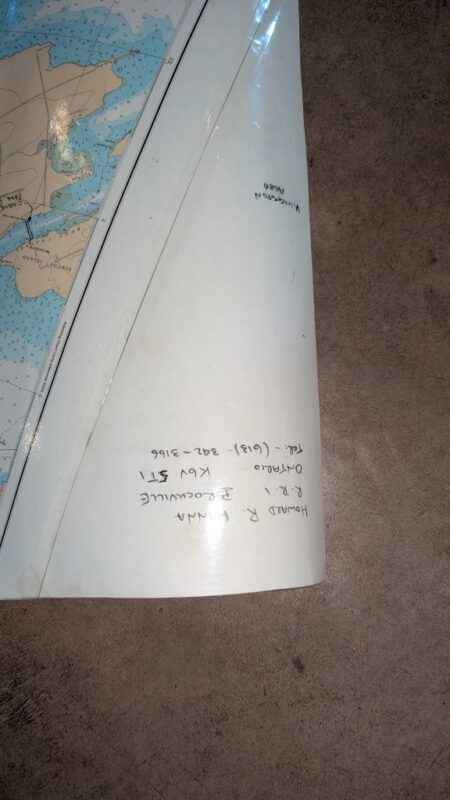 HOWARD R. HANNA
R.R 1 BROCKVILLE
ONTARIO K6V 5T1
Tel. - (613) - 342-3166
KINGSTON
AREA